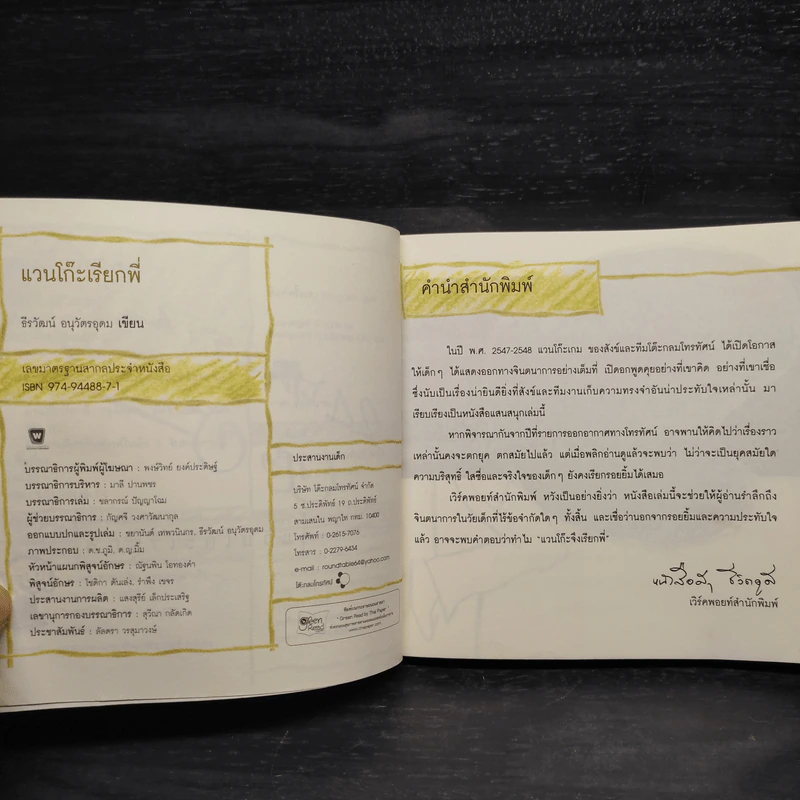 แวนโก๊ะเรียกพี่
ธีรวัฒน์ อนุวัตรอุดม เขียน
เลขมาตรฐานสากลประจำหนังสือ
ISBN 974-94488-7-1
W
บรรณาธิการผู้พิมพ์ผู้โฆษณา : พงษ์วิทย์ ยงค์ประดิษฐ์
บรรณาธิการบริหาร : มาลี ปานพชร
บรรณาธิการเล่ม : ชลากรณ์ ปัญญาโฉม
ผู้ช่วยบรรณาธิการ : กัญศจิ วงศาวัฒนากุล
ออกแบบปกและรูปเล่ม : ชยานันต์ เทพวนินกร, ธีรวัฒน์ อนุวัตรอุดม
ภาพประกอบ : ด.ช.ภูมิ, ด.ญ.มิ้ม
หัวหน้าแผนกพิสูจน์อักษร : ณัฐนพิน โอทองคำ
พิสูจน์อักษร : โชติกา ตันเล่ง, รำพึง เขจร
ประสานงานการผลิต : แสงสุรีย์ เล็กประเสริฐ
เลขานุการกองบรรณาธิการ : สุวีณา กลัดเกิด
ประชาสัมพันธ์ : ลัลตรา วรสุมาวงษ์
ประสานงานเด็ก
บริษัท โต๊ะกลมโทรทัศน์ จำกัด
5 ซ.ประดิพัทธ์ 19 ถ.ประดิพัทธ์
สามเสนใน พญาไท กทม. 10400
โทรศัพท์ : 0-2615-7076
โทรสาร : 0-2279-6434
e-mail : roundtable64@yahoo.com
โต๊ะกลมโทรทัศน์
Green Read
Green Read by Thai Paper
คำนำสำนักพิมพ์
ในปี พ.ศ. 2547-2548 แวนโก๊ะเกม ของสังข์และทีมโต๊ะกลมโทรทัศน์ ได้เปิดโอกาส
ให้เด็กๆ ได้แสดงออกทางจินตนาการอย่างเต็มที่ เปิดอกพูดคุยอย่างที่เขาคิด อย่างที่เขาเชื่อ
ซึ่งนับเป็นเรื่องน่ายินดียิ่งที่สังข์และทีมงานเก็บความทรงจำอันน่าประทับใจเหล่านั้น มา
เรียบเรียงเป็นหนังสือแสนสนุกเล่มนี้
หากพิจารณากันจากปีที่รายการออกอากาศทางโทรทัศน์ อาจพานให้คิดไปว่าเรื่องราว
เหล่านั้นคงจะตกยุค ตกสมัยไปแล้ว แต่เมื่อพลิกอ่านดูแล้วจะพบว่า ไม่ว่าจะเป็นยุคสมัยใด
ความบริสุทธิ์ ใสซื่อและจริงใจของเด็กๆ ยังคงเรียกรอยยิ้มได้เสมอ
เวิร์คพอยท์สำนักพิมพ์ หวังเป็นอย่างยิ่งว่า หนังสือเล่มนี้จะช่วยให้ผู้อ่านรำลึกถึง
จินตนาการในวัยเด็กที่ไร้ข้อจำกัดใดๆ ทั้งสิ้น และเชื่อว่านอกจากรอยยิ้มและความประทับใจ
แล้ว อาจจะพบคำตอบว่าทำไม "แวนโก๊ะจึงเรียกพี่"
เวิร์คพอยท์สำนักพิมพ์